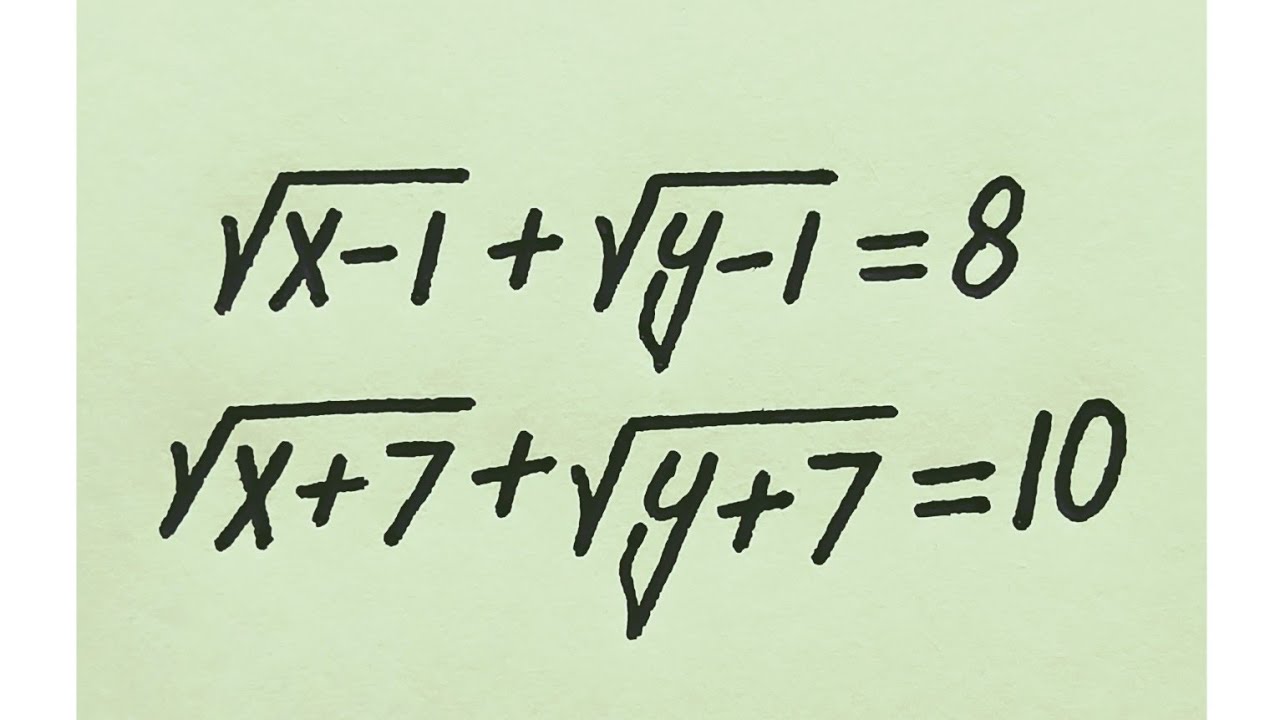 √x-1 + √y-1 = 8
√x+7 + √y+7 = 10